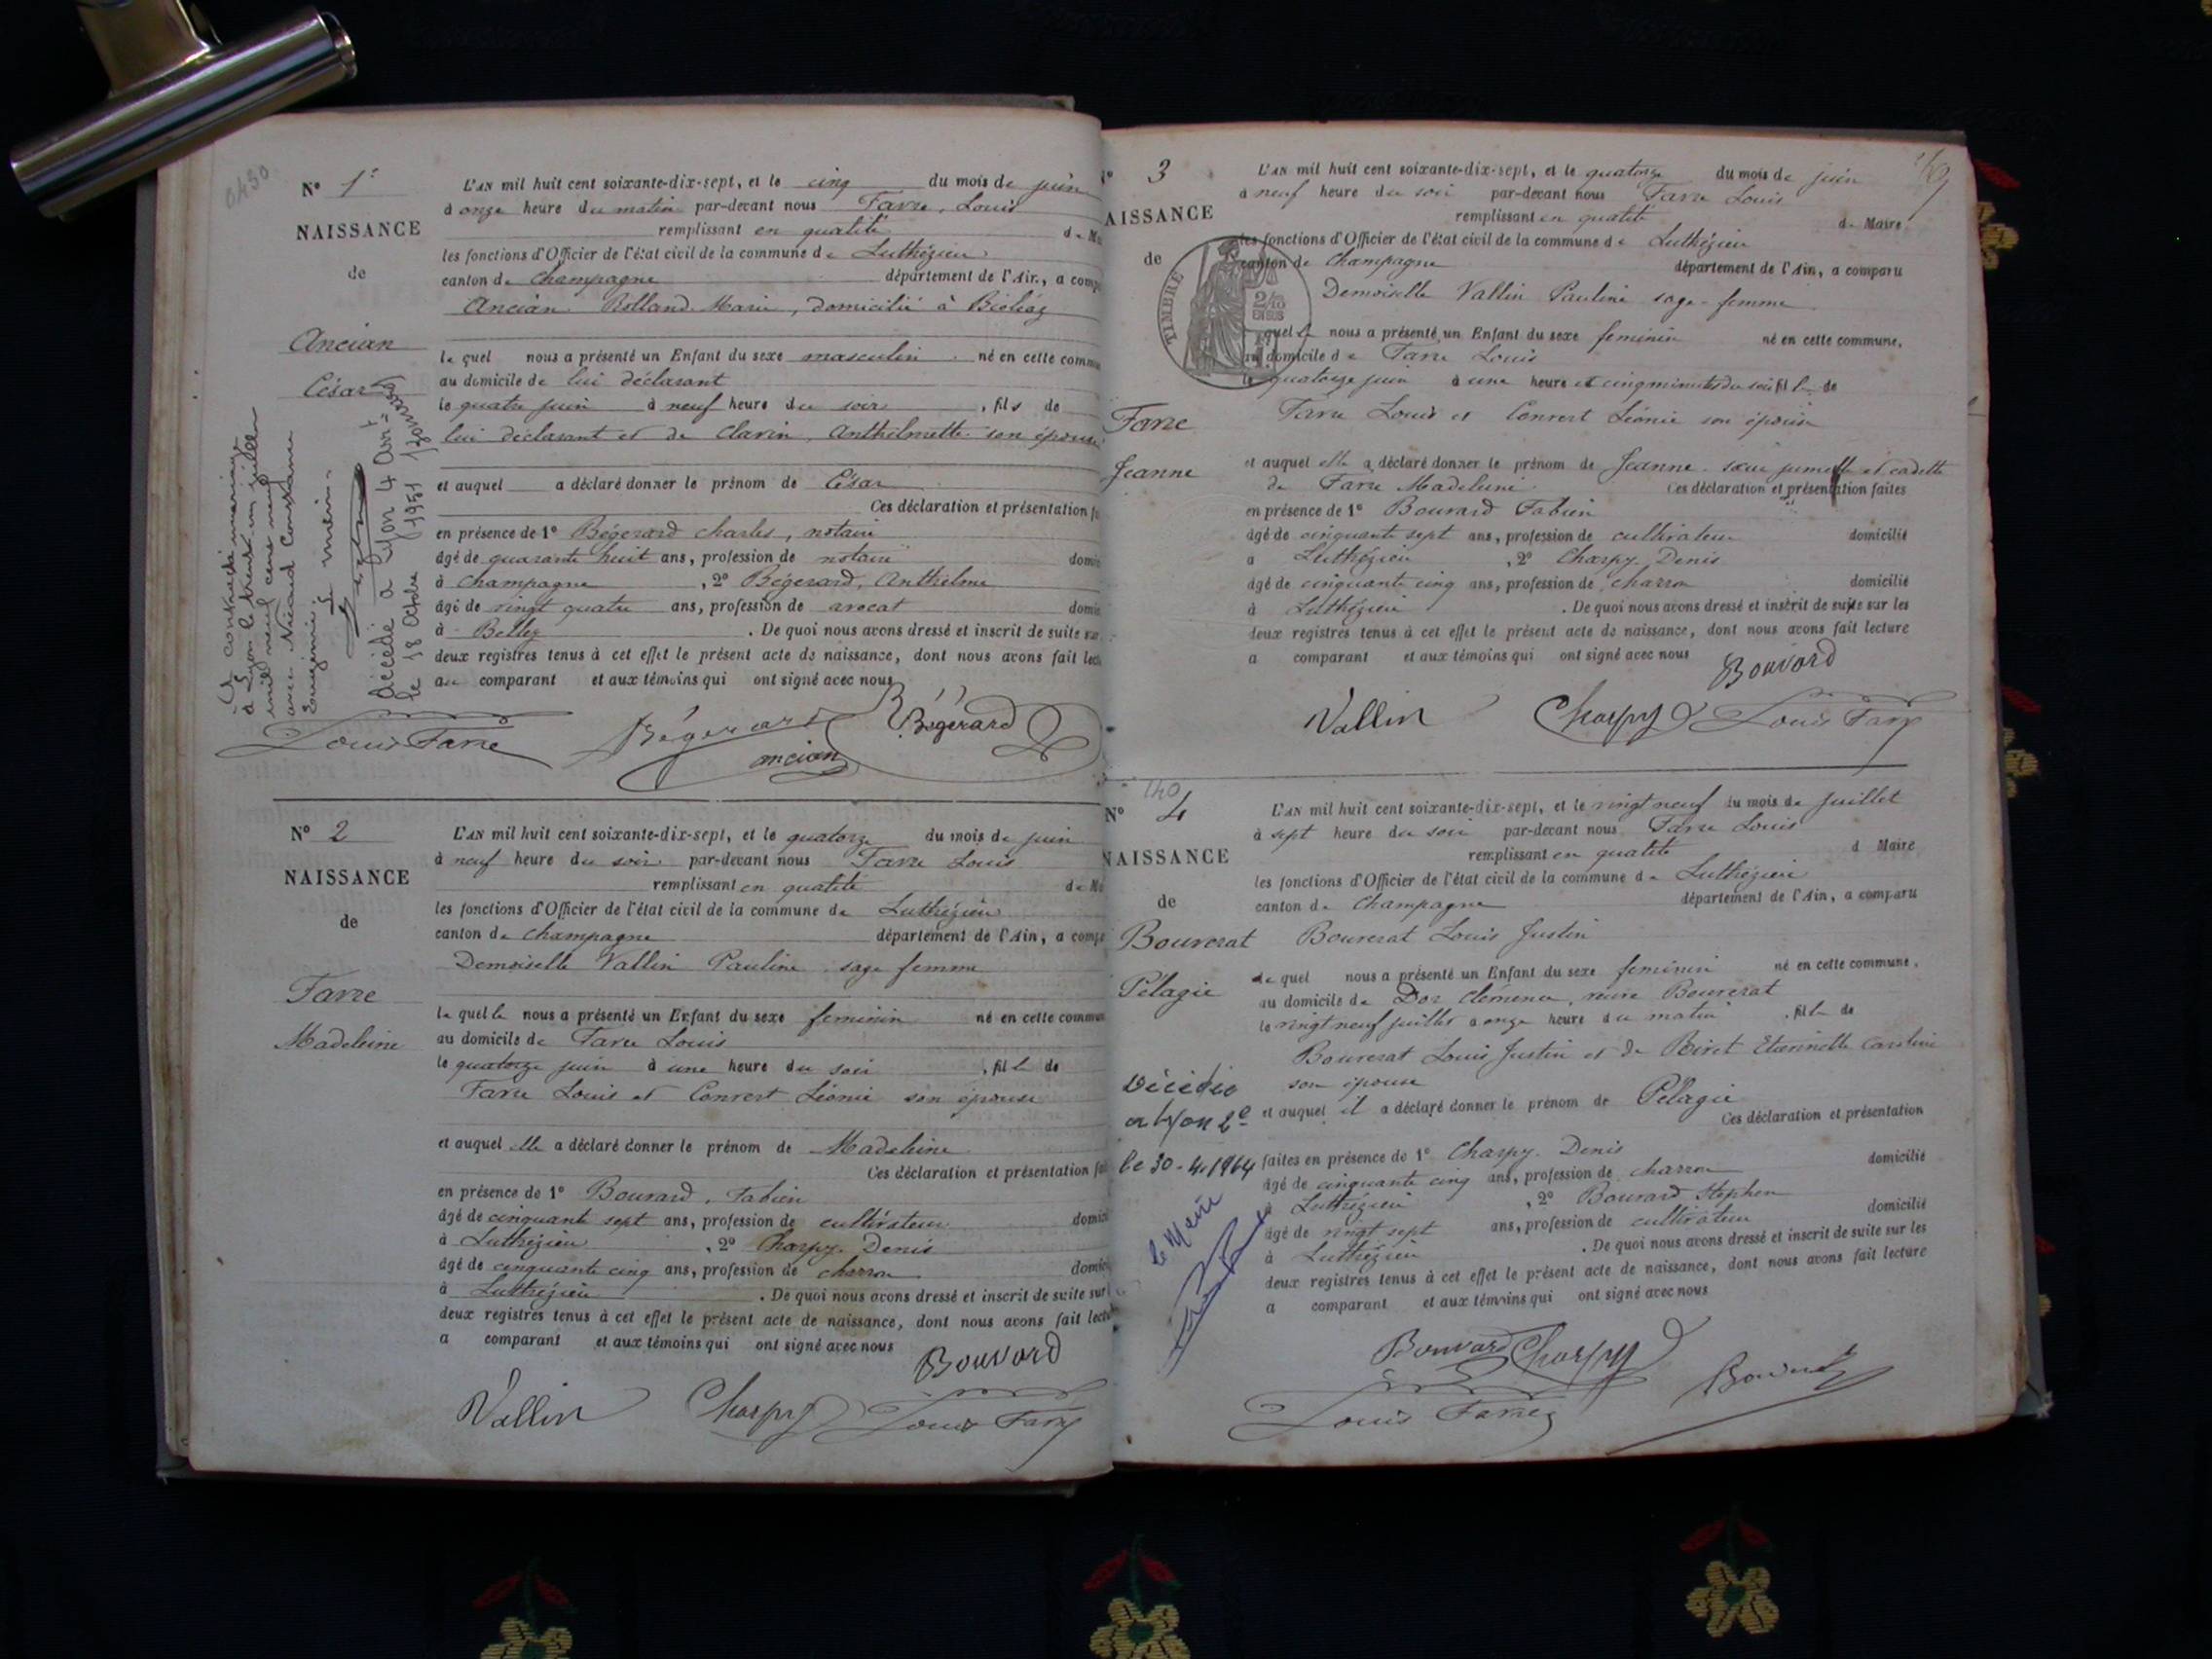 0430
N° 1er
NAISSANCE
de
Ancian
César
L'AN mil huit cent soixante-dix-sept, et le cinq du mois de juin
à onze heure du matin par-devant nous Favre, Louis
remplissant en qualité de
les fonctions d'Officier de l'état civil de la commune de Luthézieu
canton de Champagne département de l'Ain, a
Ancian Rolland Marie, domicilié à
le quel nous a présenté un Enfant du sexe masculin né en cette
au domicile de lui déclarant
le quatre juin à neuf heure du soir, fils de
lui déclarant et de Clavin Anthelmette son épouse
et auquel a déclaré donner le prénom de César
Ces déclaration et présentation
en présence de 1° Bégerard Charles, notaire
âgé de quarante huit ans, profession de notaire
à Champagne, 2° Bégerard, Anthelme
âgé de vingt quatre ans, profession de avocat
à Belley. De quoi nous avons dressé et inscrit de suite
deux registres tenus à cet effet le présent acte de naissance, dont nous avons fait
au comparant et aux témoins qui ont signé avec nous
A contracté mariage
à Lyon le trente un juillet
mil neuf cent neuf
avec Nicoud Constance
Eugénie.
Le maire.
décédé à Lyon 4 Arrt
le 18 Octobre 1951
Louis Favre Bégerard Bégerard
ancian
N° 2
NAISSANCE
de
Favre
Madeleine
L'AN mil huit cent soixante-dix-sept, et le quatorze du mois de juin
à neuf heure du soir par-devant nous Favre Louis
remplissant en qualité de
les fonctions d'Officier de l'état civil de la commune de Luthézieu
canton de Champagne département de l'Ain, a
Demoiselle Vallin Pauline sage femme
la quelle nous a présenté un Enfant du sexe feminin né en cette
au domicile de Favre Louis
le quatorze juin à une heure du soir, fille de
Favre Louis et Convert Léonie son épouse
et auquel elle a déclaré donner le prénom de Madeleine
Ces déclaration et présentation
en présence de 1° Bouvard, Fabien
âgé de cinquante sept ans, profession de cultivateur
à Luthézieu, 2° Charpy Denis
âgé de cinquante cinq ans, profession de charron
à Luthézieu. De quoi nous avons dressé et inscrit de suite sur
deux registres tenus à cet effet le présent acte de naissance, dont nous avons fait
a comparant et aux témoins qui ont signé avec nous
Bouvard
Vallin Charpy Louis Favre
N° 3
NAISSANCE
de
TIMBRE
2/10
EN SUS
Favre
Jeanne
L'AN mil huit cent soixante-dix-sept, et le quatorze du mois de juin
à neuf heure du soir par-devant nous Favre Louis
remplissant en qualité de Maire
les fonctions d'Officier de l'état civil de la commune de Luthézieu
canton de Champagne département de l'Ain, a comparu
Demoiselle Vallin Pauline sage-femme
quelle nous a présenté un Enfant du sexe feminin né en cette commune,
au domicile de Favre Louis
le quatorze juin à une heure et cinq minutes du soir fille de
Favre Louis et Convert Léonie son épouse
et auquel elle a déclaré donner le prénom de Jeanne sœur jumelle et cadette
de Favre Madeleine Ces déclaration et présentation faites
en présence de 1° Bouvard Fabien
âgé de cinquante sept ans, profession de cultivateur domicilié
à Luthézieu, 2° Charpy Denis
âgé de cinquante cinq ans, profession de charron domicilié
à Luthézieu. De quoi nous avons dressé et inscrit de suite sur les
deux registres tenus à cet effet le présent acte de naissance, dont nous avons fait lecture
a comparant et aux témoins qui ont signé avec nous
Bouvard
Vallin Charpy Louis Favre
140
N° 4
NAISSANCE
de
Bouverat
Pélagie
L'AN mil huit cent soixante-dix-sept, et le vingt neuf du mois de juillet
à sept heure du soir par-devant nous Favre Louis
remplissant en qualité d Maire
les fonctions d'Officier de l'état civil de la commune de Luthézieu
canton de Champagne département de l'Ain, a comparu
Bouverat Louis Justin
le quel nous a présenté un Enfant du sexe feminin né en cette commune,
au domicile de Dor Clémence, veuve Bouverat
le vingt neuf juillet à onze heure du matin, fille de
Bouverat Louis Justin et de Biret Etiennette Caroline
son épouse
et auquel il a déclaré donner le prénom de Pélagie
Ces déclaration et présentation
faites en présence de 1° Charpy Denis
âgé de cinquante cinq ans, profession de charron domicilié
à Luthézieu, 2° Bouvard Stephen
âgé de vingt sept ans, profession de cultivateur domicilié
à Luthézieu. De quoi nous avons dressé et inscrit de suite sur les
deux registres tenus à cet effet le présent acte de naissance, dont nous avons fait lecture
a comparant et aux témoins qui ont signé avec nous
Décédée
à Lyon 2e
le 30-4-1964
le Maire
Bouvard Charpy
Louis Favre